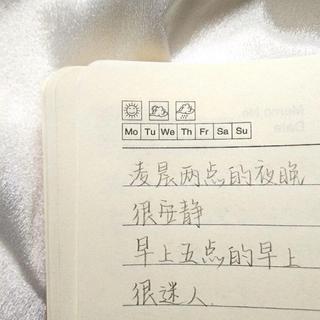 Mo Tu We Th Fr Sa Su
凌晨两点的夜晚
很安静
早上五点的早上
很迷人